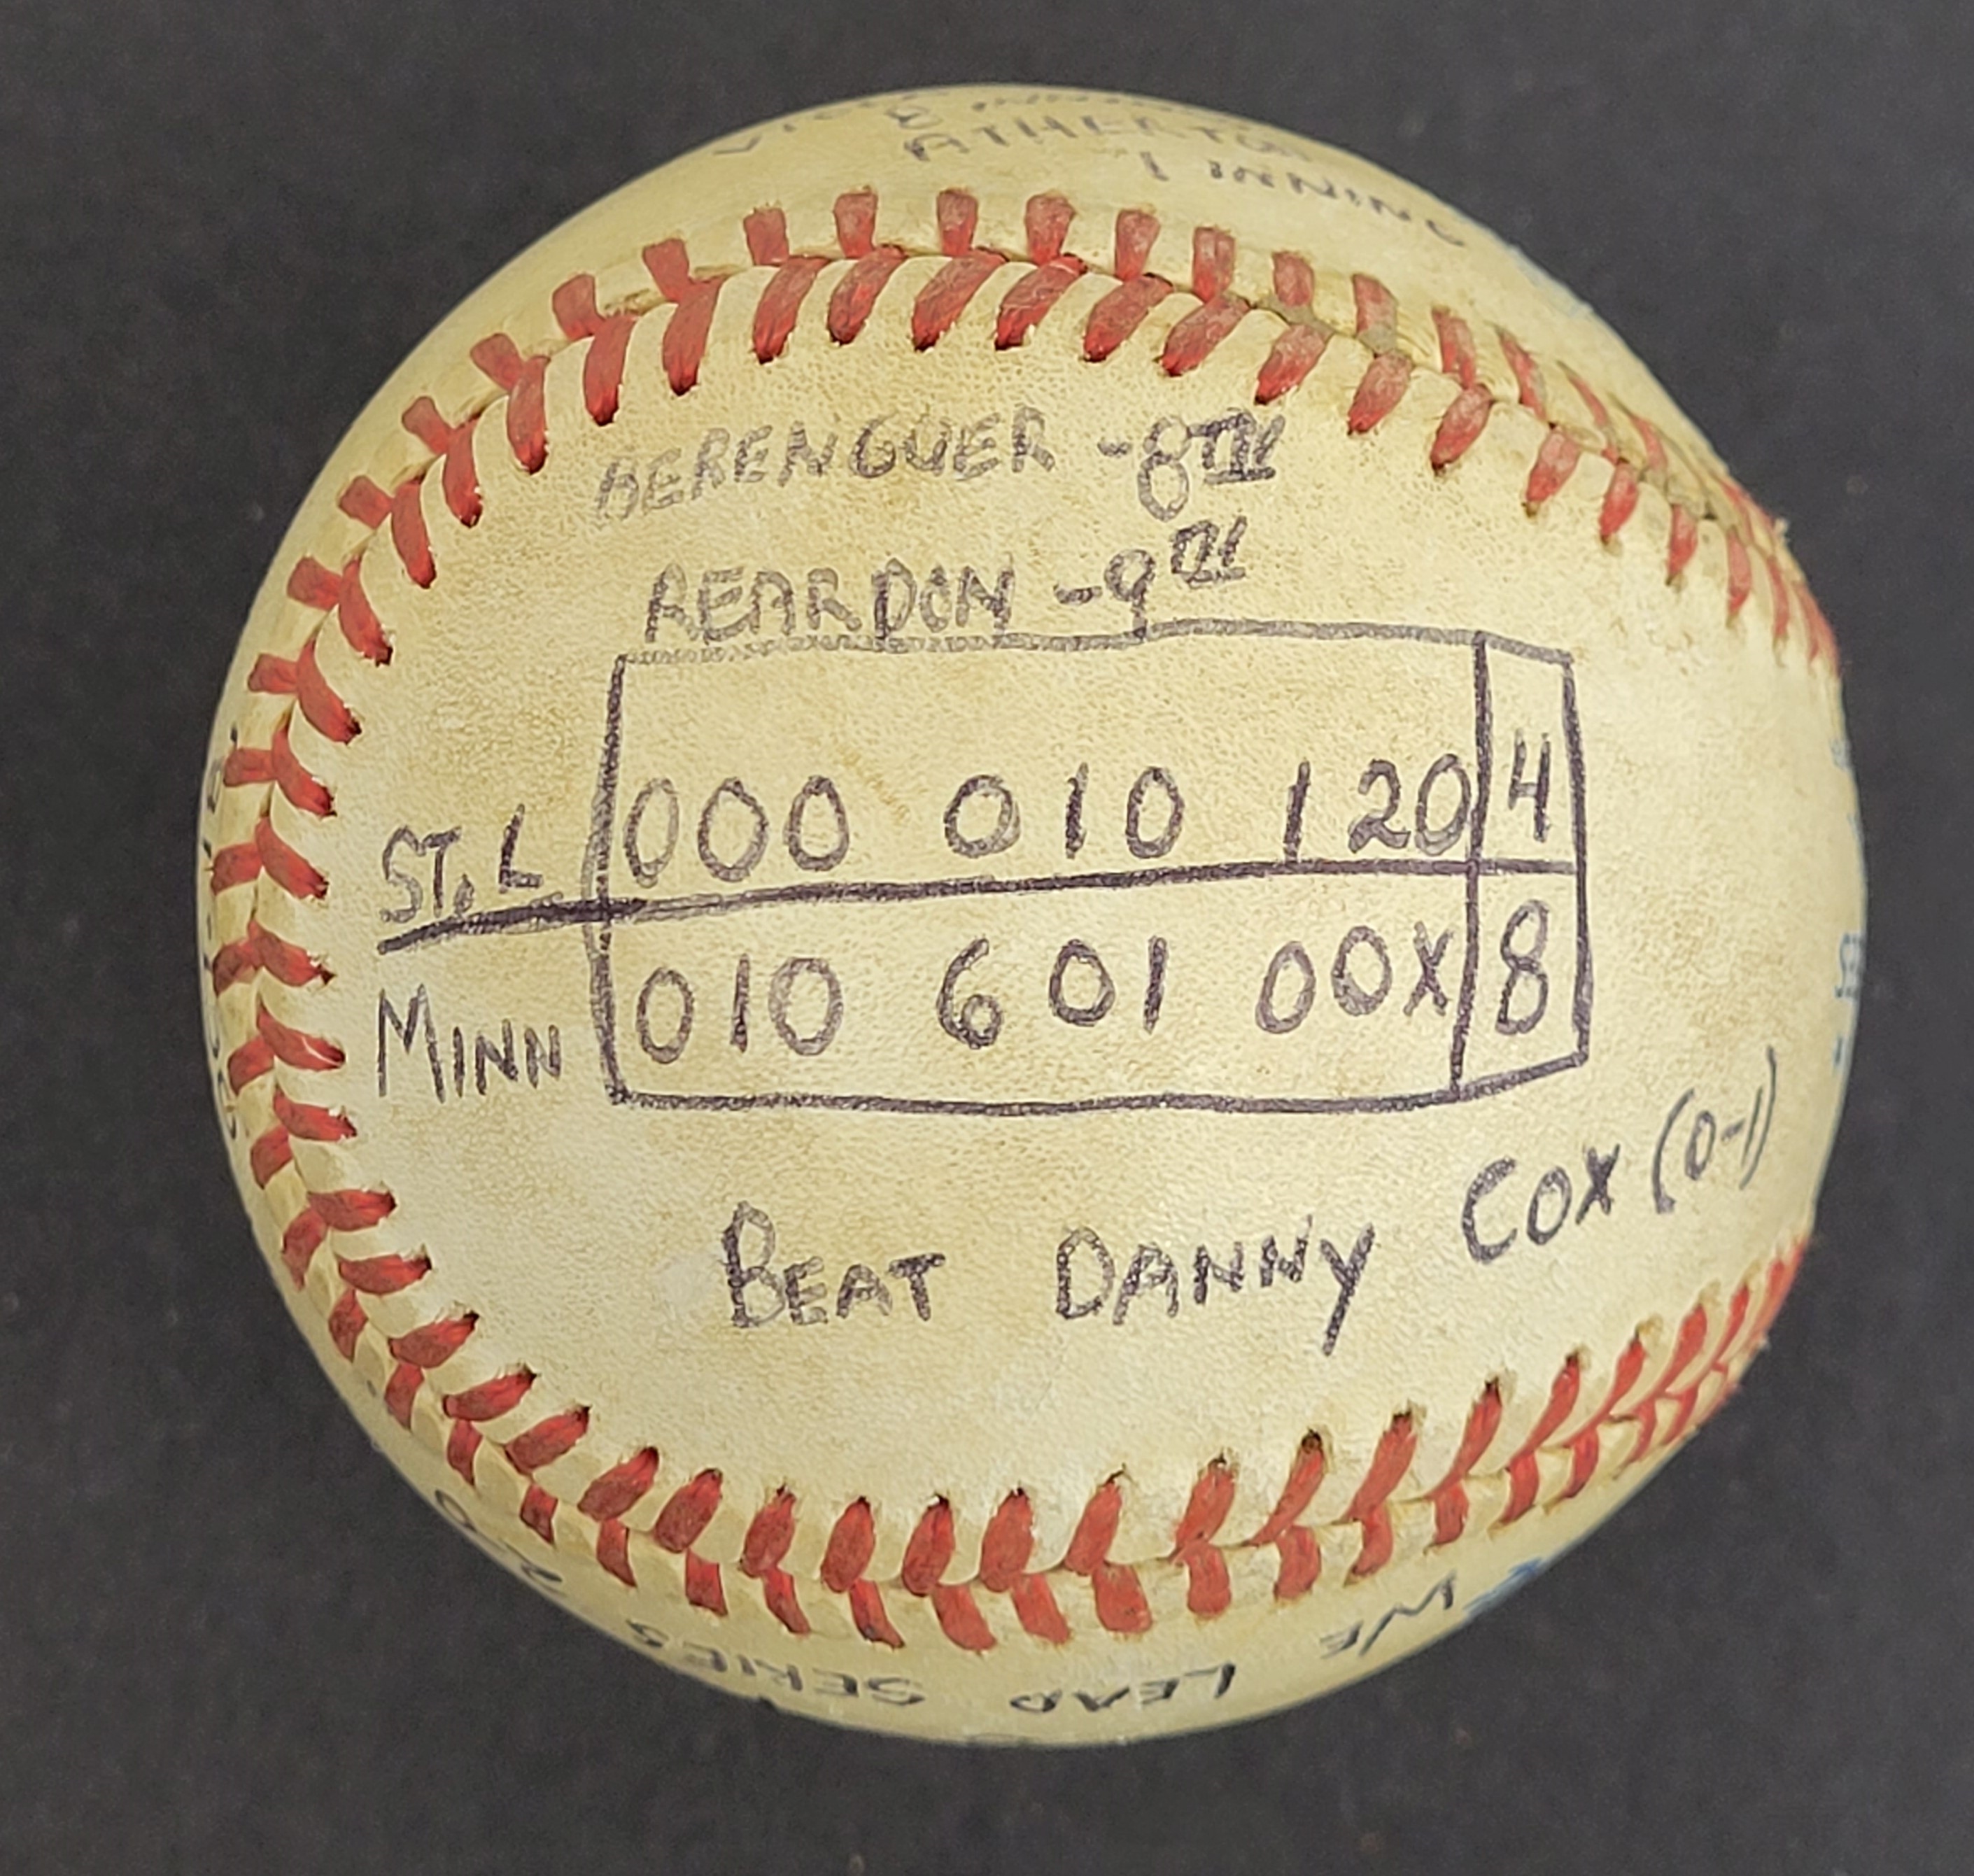 ATHERTON
1 INNING
BERENGUER -8TH
REARDON -9TH
ST. L 000 010 120 4
MINN 010 601 00X 8
BEAT DANNY COX (0-1)
WE LEAD SERIES 2-0